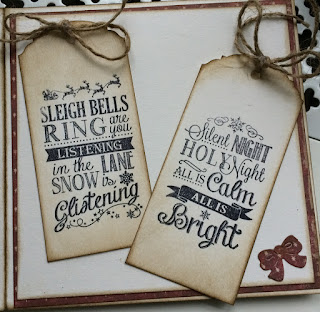 SLEIGH BELLS
RING are you
LISTENING
in the LANE
SNOW is
Glistening
Silent NIGHT
HOLY Night
ALL IS Calm
ALL IS
Bright